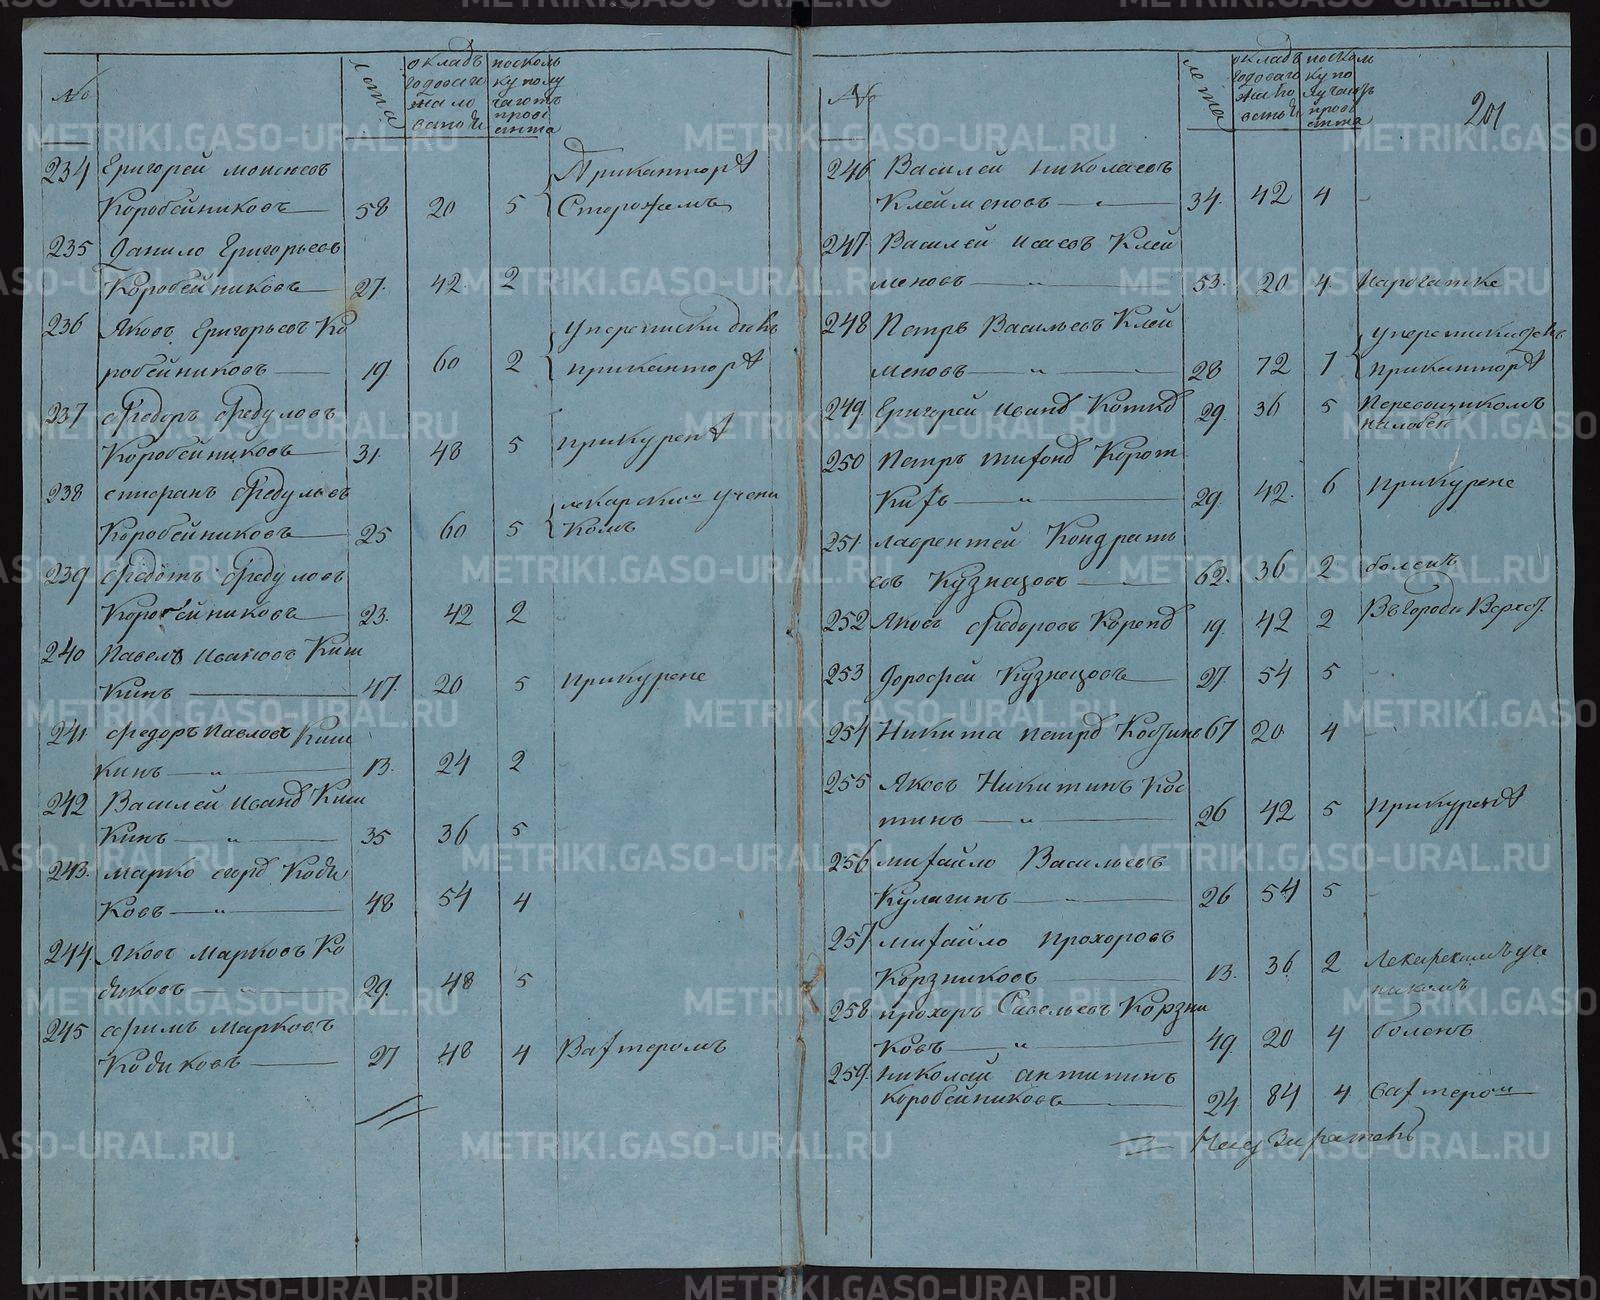 №
лета
окладъ
годоваго
жало
ванья
посколь
ку полу
чаютъ
прови
анта
234 Григорей Моисеевъ
Коробейниковъ 58 20 5
При конторѣ
Сторожемъ
235 Данило Григорьевъ
Коробейниковъ 27. 42. 2
236 Яковъ Григорьевъ Ко
робейниковъ 19 60 2
У переписки дѣлъ
при конторѣ
237 Федоръ Федуловъ
Коробейниковъ 31 48 5
при куренѣ
238 Степанъ Федуловъ
Коробейниковъ 25 60 5
лекарскимъ учени
комъ
239 Федотъ Федуловъ
Коробейниковъ 23. 42 2
240 Павелъ Ивановъ Киш
кинъ 47. 20 5 при курене
241 Федоръ Павловъ Киш
кинъ 13. 24 2
242 Василей Иванов Киш
кинъ — „ — 35 36 5
243. Марко Коди
ковъ — „ — 48 54 4
244. Яковъ Марковъ Ко
диковъ 29. 48 5
245 Ефимъ Марковъ
Кодиковъ 27 48 4 Вахтеромъ
201
№
лета
окладъ
годоваго
жало
ванья
посколь
ку по
лучаютъ
прови
анта
246 Василей Николаевъ
Клейменовъ — „ — 34. 42 4 -
247 Василей Исаевъ Клей
меновъ — „ — 53. 20 4
248 Петръ Васильевъ Клей
меновъ — „ — 28 72 1
У переписки дѣлъ
при конторѣ
249. Григорей Иванов 29. 36 5 Перевощикомъ
250 Петръ Корот
кихъ — „ — 29. 42. 6 при курене
251 Лаврентей Кондрать
евъ Кузнецовъ 62. 36 2 боленъ
252 Яковъ Федоровъ 19. 42 2 Въ городе
253 Дорофей Кузнецовъ 27 54 5 -
254 Никита Петров Костинъ 67 20 4 -
255 Яковъ Никитинъ Кос
тинъ — „ — 26 42 5 При куренѣ
256 Михайло Васильевъ
Кулагинъ — „ — 26 54 5 -
257 Михайло Прохоровъ
Корзниковъ 13. 36 2 Лекарскимъ уче
никомъ
258 Прохоръ Савельевъ Корзни
ковъ — „ — 49. 20 4 боленъ
259. Николай Антипинъ
Коробейниковъ 24 84 4 вахтеромъ